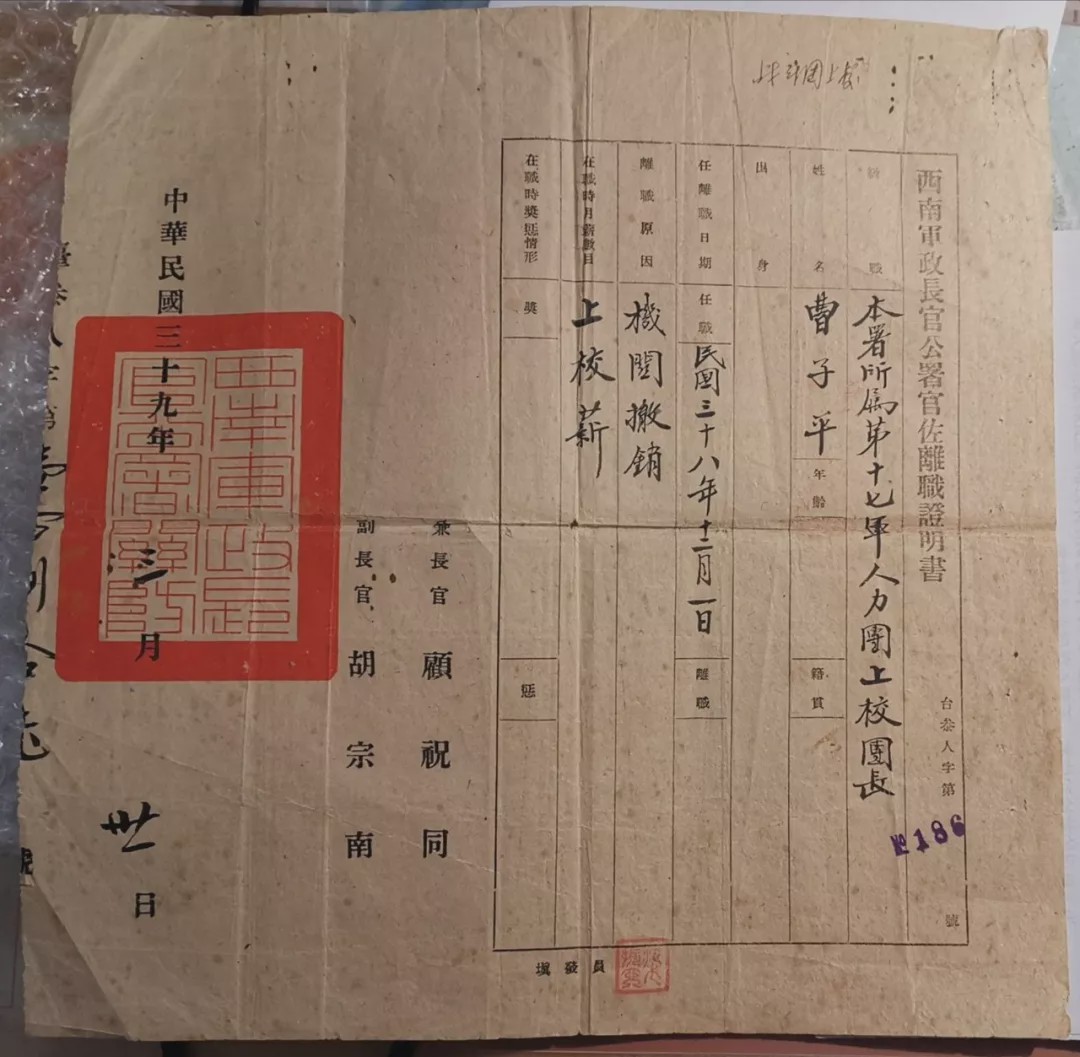 西南軍政長官公署官佐離職證明書
台叁人字第
№186
號
級職
本署所属第十七軍人力團上校團長
姓名
曹子平
年齡
籍貫
出身
任離職日期
任職
民國三十八年十二月一日
離職
離職原因
機関撤銷
在職時月薪數目
上校薪
在職時獎惩情形
獎
惩
填發員
兼長官 顧祝同
副長官 胡宗南
中華民國三十九年三月卅日
西南軍政長官公署關防